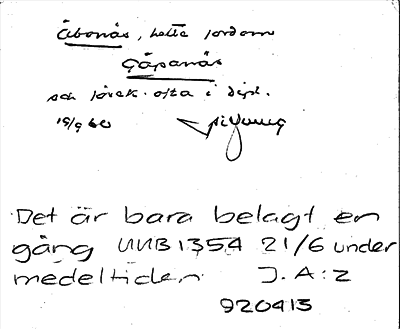 Åbonäs, hette fordom
Gåpanäs
och förek. ofta i dipl.
15/9 60
Det är bara belagt en
gång UUB 1354 21/6 under
medeltiden J.A:z
920413